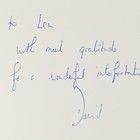 to Len
with much gratitude
for a wonderful interpretation
David